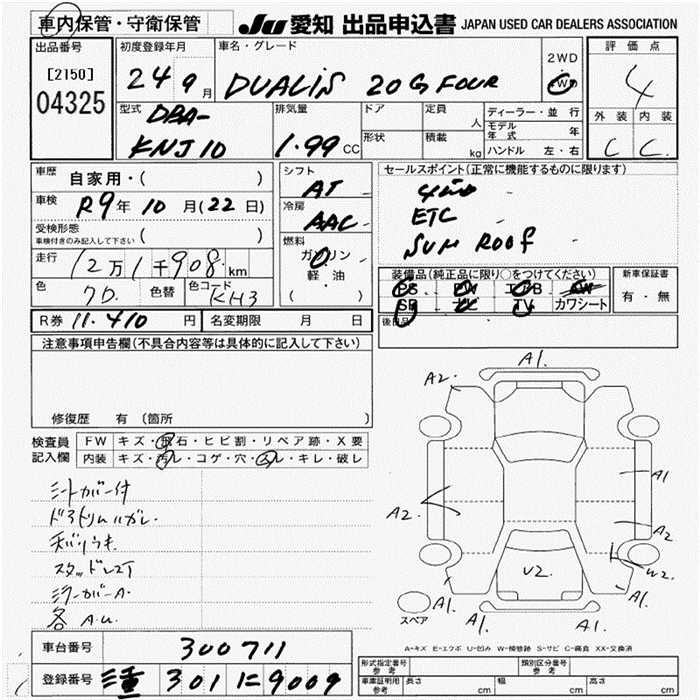 車内保管・守衛保管
JU 愛知 出品申込書 JAPAN USED CAR DEALERS ASSOCIATION
出品番号 初度登録年月 車名・グレード 評価点
[2150] 24 9月 DUALIS 20G FOUR 2WD 4WD 4
04325
型式 DBA- 排気量 ドア 定員 人 ディーラー・並行 外装 内装
KNJ10 1.99 CC 形状 積載 kg モデル年式 年 C C
ハンドル 左・右
車歴 自家用・( ) シフト AT セールスポイント(正常に機能するものに限ります)
車検 R9年 10月(22日) 冷房 AAC
ETC
受検形態 車検付きのみ記入して下さい ( ) SUN ROOF
走行 12万1千908km 燃料 ガソリン 軽・油 ( )
装備品(純正品に限り○をつけてください) 新車保証書
色 色替 色コード KH3 PS PW ABS AW 有・無
SR TV カワシート
R券 11.410円 名変期限 月 日 後日品
注意事項申告欄(不具合内容等は具体的に記入して下さい)
修復歴 有 (箇所 )
検査員記入欄 FW キズ・飛石・ヒビ割・リペア跡・X要
内装 キズ・汚レ・コゲ・穴・スレ・キレ・破レ
シートカバー付
ドアトリムハガレ
各 A.U.
A1.
A2.
A1
A2.
A2
W2
U2.
A1.
A1.
A1.
スペア
A-キズ E-エクボ U-凹み W-補修跡 S-サビ C-腐食 XX-交換済
車台番号 300711
登録番号 三重 301 に 9009
形式指定番号 参考 類別区分番号 参考
車庫証明用 参考 長さ cm 幅 cm 高さ cm